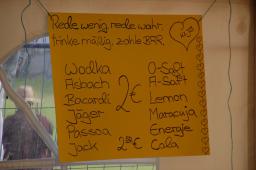 Rede wenig, rede wahr,
trinke mäßig, zahle BAR.
Wodka O-Saft
Asbach A-Saft
Bacardi 2€ Lemon
Jäger Maracuja
Passoa Energie
Jack 2,50€ Cola